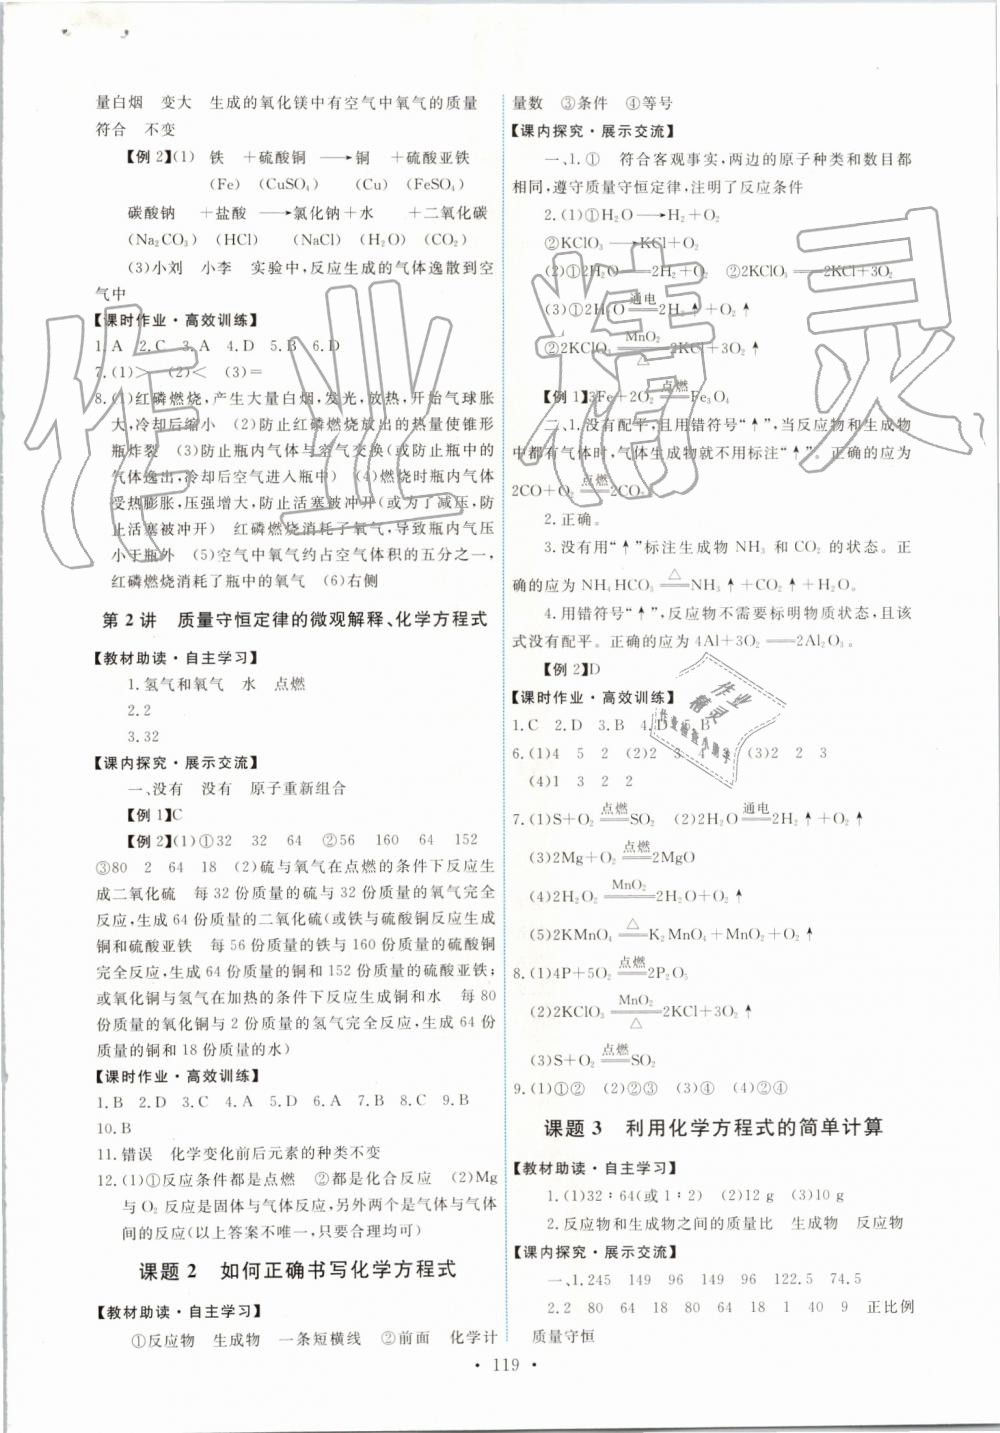 量白烟　变大　生成的氧化镁中有空气中氧气的质量
符合　不变
【例2】(1)　铁　＋硫酸铜 ⟶ 铜　＋硫酸亚铁
(Fe)　(CuSO₄)　(Cu)　(FeSO₄)
碳酸钠　＋盐酸 ⟶ 氯化钠＋水　＋二氧化碳
(Na₂CO₃)　(HCl)　(NaCl)　(H₂O)　(CO₂)
(3)小刘　小李　实验中,反应生成的气体逸散到空
气中
【课时作业·高效训练】
1.A　2.C　3.A　4.D　5.B　6.D
7.(1)＞　(2)＜　(3)＝
8.(1)红磷燃烧,产生大量白烟,发光,放热,开始气球胀
大,冷却后缩小　(2)防止红磷燃烧放出的热量使锥形
瓶炸裂　(3)防止瓶内气体与空气交换(或防止瓶中的
气体逸出,冷却后空气进入瓶中)　(4)燃烧时瓶内气体
受热膨胀,压强增大,防止活塞被冲开(或为了减压,防
止活塞被冲开)　红磷燃烧消耗了氧气,导致瓶内气压
小于瓶外　(5)空气中氧气约占空气体积的五分之一,
红磷燃烧消耗了瓶中的氧气　(6)右侧
第2讲　质量守恒定律的微观解释、化学方程式
【教材助读·自主学习】
1.氢气和氧气　水　点燃
2.2
3.32
【课内探究·展示交流】
一、没有　没有　原子重新组合
【例1】C
【例2】(1)①32　32　64　②56　160　64　152
③80　2　64　18　(2)硫与氧气在点燃的条件下反应生
成二氧化硫　每32份质量的硫与32份质量的氧气完全
反应,生成64份质量的二氧化硫(或铁与硫酸铜反应生成
铜和硫酸亚铁　每56份质量的铁与160份质量的硫酸铜
完全反应,生成64份质量的铜和152份质量的硫酸亚铁;
或氧化铜与氢气在加热的条件下反应生成铜和水　每80
份质量的氧化铜与2份质量的氢气完全反应,生成64份
质量的铜和18份质量的水)
【课时作业·高效训练】
1.B　2.D　3.C　4.D　5.D　6.A　7.B　8.C　9.B
10.B
11.错误　化学变化前后元素的种类不变
12.(1)①反应条件都是点燃　②都是化合反应　(2)Mg
与O₂反应是固体与气体反应,另外两个是气体与气体
间的反应(以上答案不唯一,只要合理均可)
课题2　如何正确书写化学方程式
【教材助读·自主学习】
①反应物　生成物　一条短横线　②前面　化学计
量数　③条件　④等号
【课内探究·展示交流】
一、1.①　符合客观事实,两边的原子种类和数目都
相同,遵守质量守恒定律,注明了反应条件
2.(1)①H₂O⟶H₂＋O₂
②KClO₃⟶KCl＋O₂
(2)①2H₂O══2H₂＋O₂　②2KClO₃══2KCl＋3O₂
(3)①2H₂O══通电══2H₂↑＋O₂↑
②2KClO₃══MnO₂△══2KCl＋3O₂↑
【例1】3Fe＋2O₂══点燃══Fe₃O₄
二、1.没有配平,且用错符号“↑”,当反应物和生成物
中都有气体时,气体生成物就不用标注“↑”。正确的应为
2CO＋O₂══点燃══2CO₂
2.正确。
3.没有用“↑”标注生成物 NH₃ 和 CO₂ 的状态。正
确的应为 NH₄HCO₃══△══NH₃↑＋CO₂↑＋H₂O
4.用错符号“↑”,反应物不需要标明物质状态,且该
式没有配平。正确的应为 4Al＋3O₂══2Al₂O₃。
【例2】D
【课时作业·高效训练】
1.C　2.D　3.B　4.D　5.B
6.(1)4　5　2　(2)2　3　4　(3)2　2　3
(4)1　3　2　2
7.(1)S＋O₂══点燃══SO₂　(2)2H₂O══通电══2H₂↑＋O₂↑
(3)2Mg＋O₂══点燃══2MgO
(4)2H₂O₂══MnO₂══2H₂O＋O₂↑
(5)2KMnO₄══△══K₂MnO₄＋MnO₂＋O₂↑
8.(1)4P＋5O₂══点燃══2P₂O₅
(2)2KClO₃══MnO₂△══2KCl＋3O₂↑
(3)S＋O₂══点燃══SO₂
9.(1)①②　(2)②③　(3)④　(4)②④
课题3　利用化学方程式的简单计算
【教材助读·自主学习】
1.(1)32∶64(或1∶2)　(2)12 g　(3)10 g
2.反应物和生成物之间的质量比　生成物　反应物
【课内探究·展示交流】
一、1.245　149　96　149　96　122.5　74.5
2.2　80　64　18　80　64　18　1　40　9　正比例
质量守恒
· 119 ·
作业精灵
作业
精灵